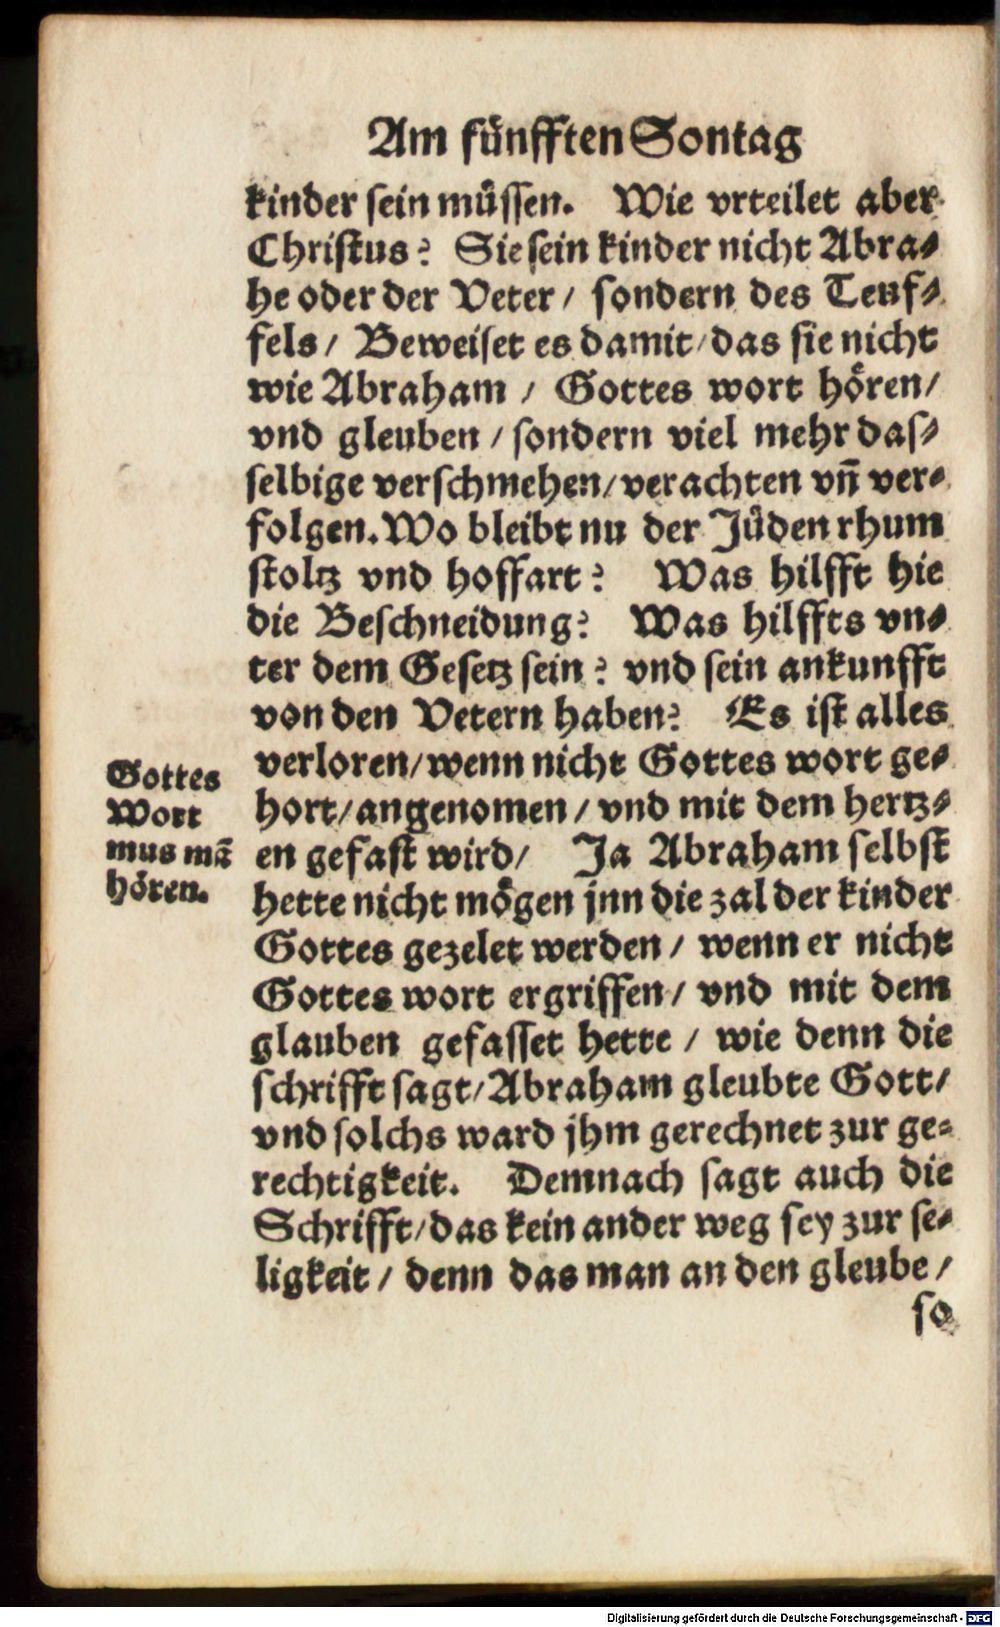 Am fünfften Sontag
kinder sein müssen. Wie vrteilet aber
Christus? Sie sein kinder nicht Abra⸗
he oder der Veter / sondern des Teuf⸗
fels / Beweiset es damit / das sie nicht
wie Abraham / Gottes wort hören /
vnd gleuben / sondern viel mehr das⸗
selbige verschmehen / verachten vñ ver⸗
folgen. Wo bleibt nu der Jüden rhum
stoltz vnd hoffart? Was hilfft hie
die Beschneidung? Was hilffts vn⸗
ter dem Gesetz sein? vnd sein ankunfft
von den Vetern haben? Es ist alles
verloren / wenn nicht Gottes wort ge⸗
hort / angenomen / vnd mit dem hertz⸗
en gefast wird / Ja Abraham selbst
hette nicht mögen jnn die zal der kinder
Gottes gezelet werden / wenn er nicht
Gottes wort ergriffen / vnd mit dem
glauben gefasset hette / wie denn die
schrifft sagt / Abraham gleubte Gott /
vnd solchs ward jhm gerechnet zur ge⸗
rechtigkeit. Demnach sagt auch die
Schrifft / das kein ander weg sey zur se⸗
ligkeit / denn das man an den gleube /
so
Gottes
Wort
mus mā
hören.
Digitalisierung gefördert durch die Deutsche Forschungsgemeinschaft - DFG